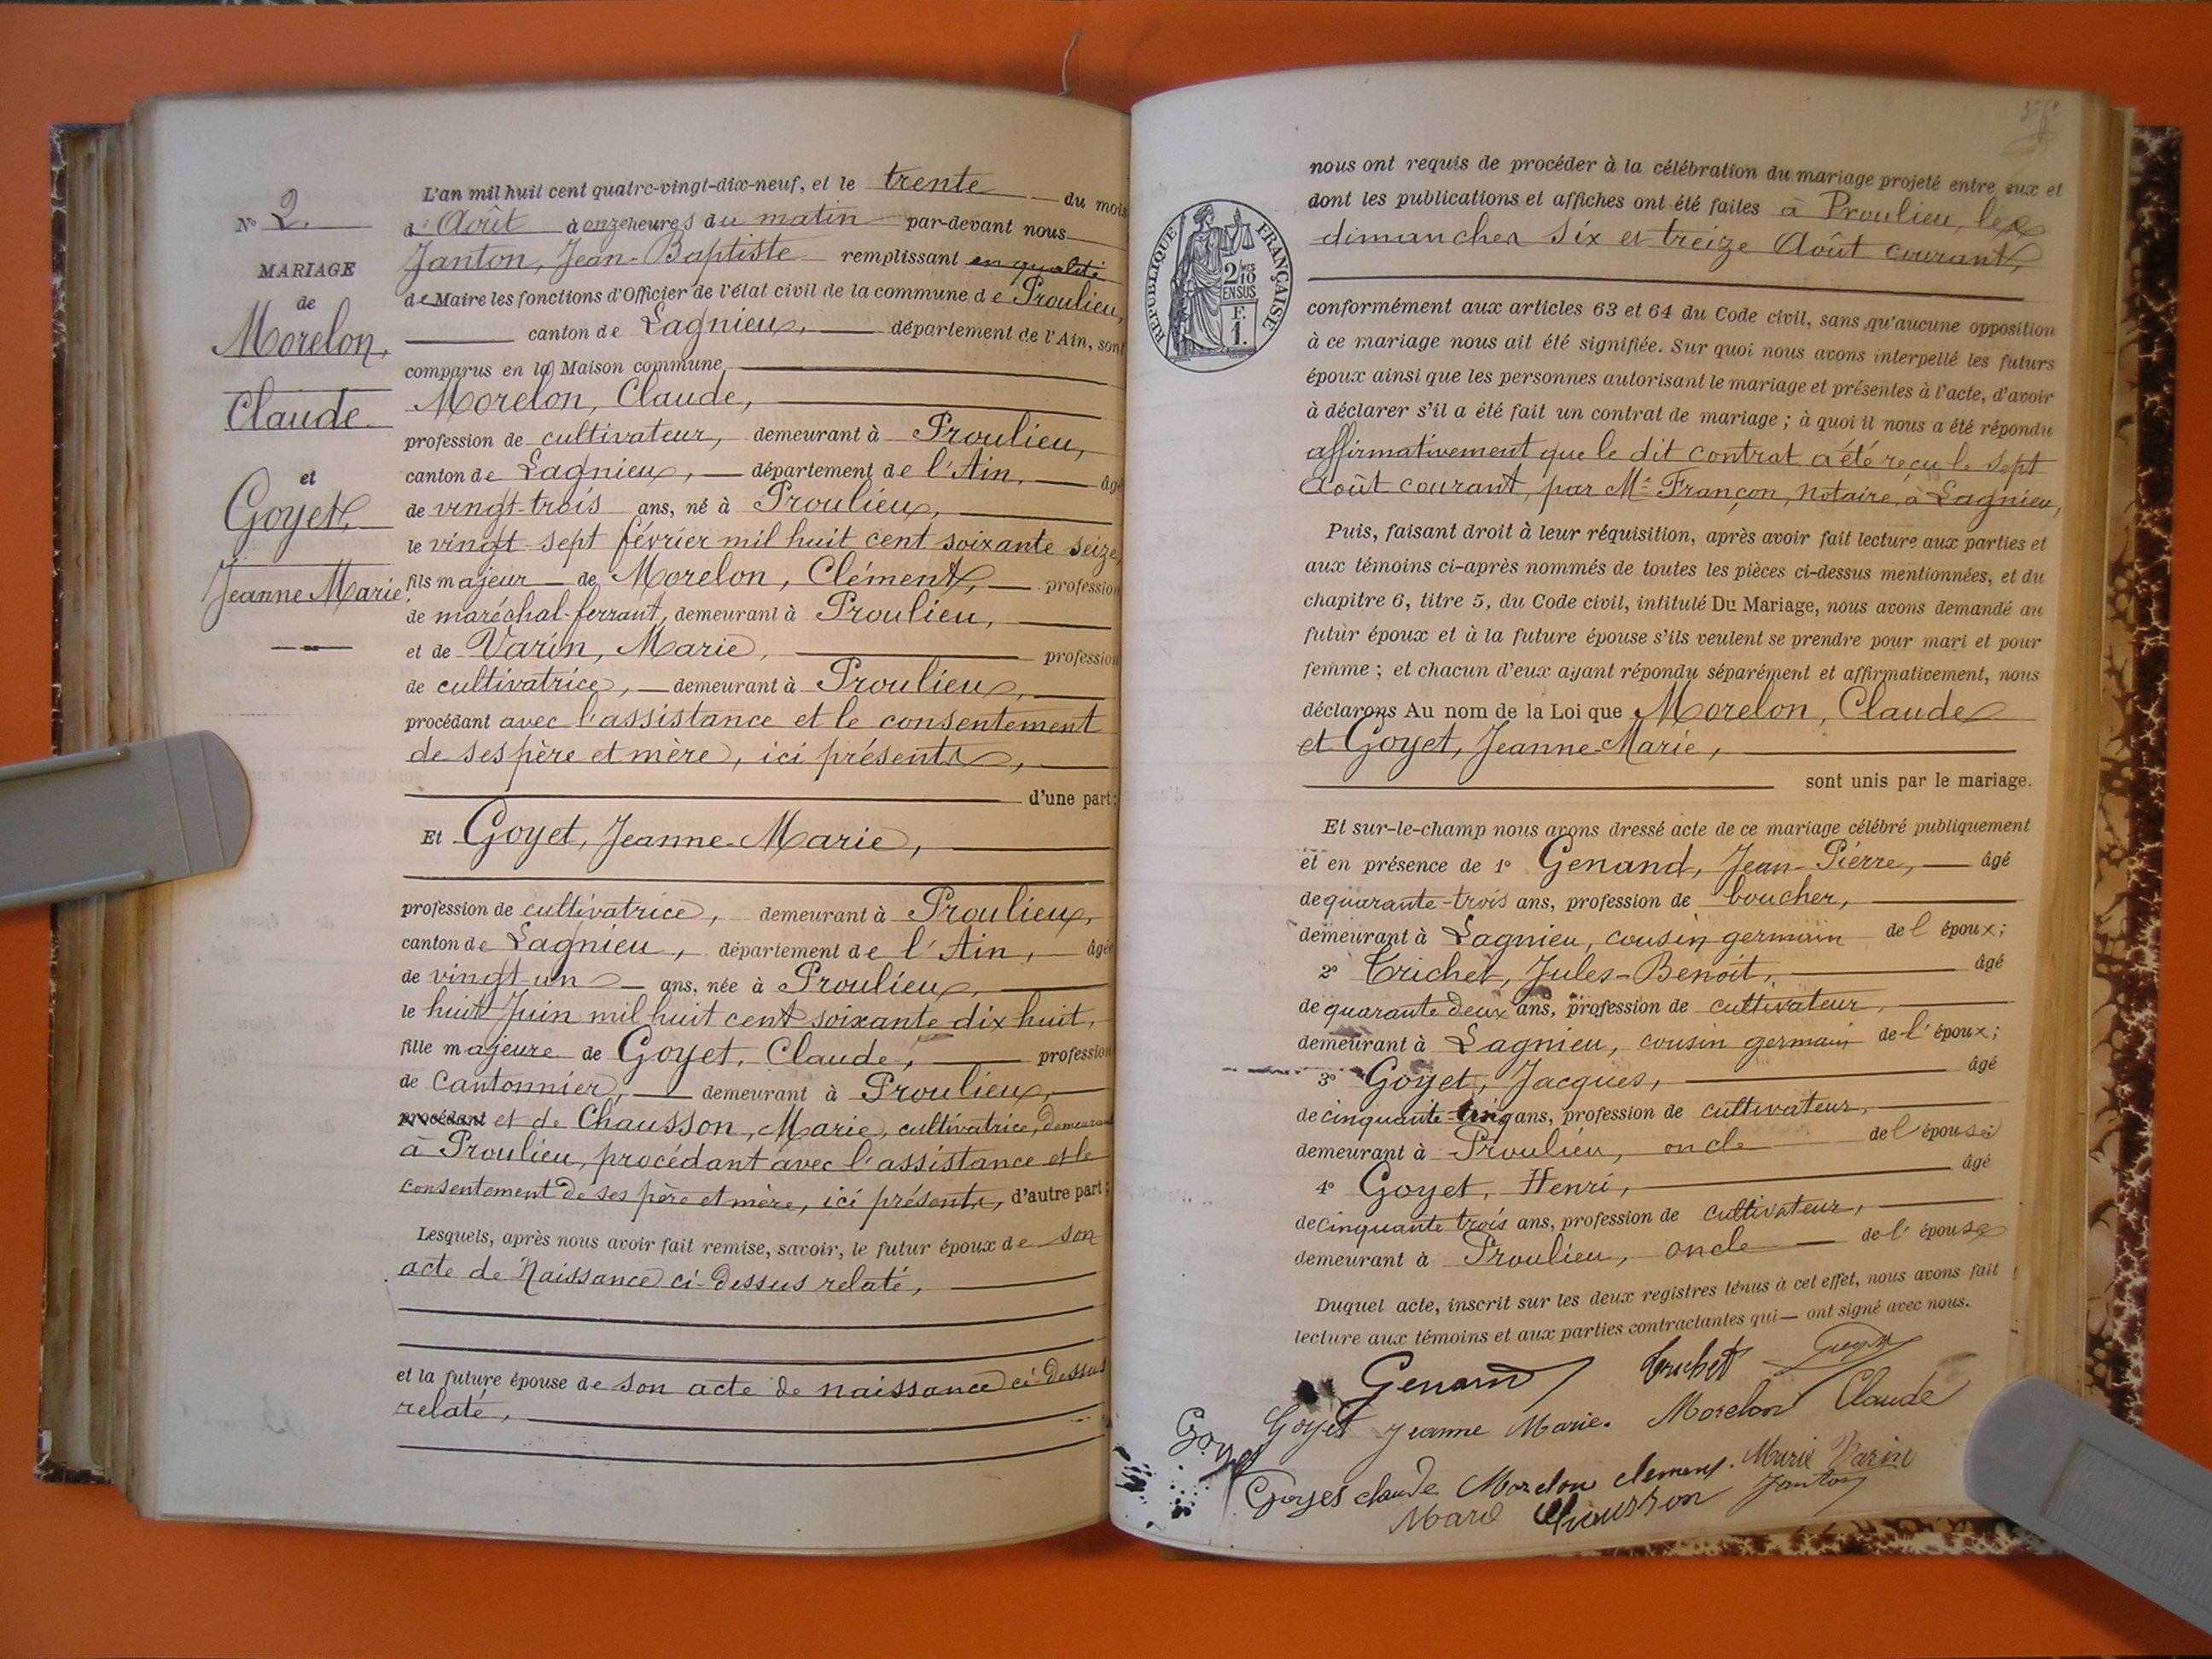 No 2.
MARIAGE
de
Morelon,
Claude
et
Goyet,
Jeanne Marie
L'an mil huit cent quatre-vingt-dix-neuf, et le trente du mois
d'Août à onze heures du matin par-devant nous
Janton, Jean-Baptiste remplissant en qualité
de Maire les fonctions d'Officier de l'état civil de la commune de Proulieu,
canton de Lagnieu, département de l'Ain, sont
comparus en la Maison commune
Morelon, Claude,
profession de cultivateur, demeurant à Proulieu,
canton de Lagnieu, département de l'Ain, âgé
de vingt-trois ans, né à Proulieu,
le vingt-sept février mil huit cent soixante seize,
fils majeur de Morelon, Clément, profession
de maréchal-ferrant, demeurant à Proulieu,
et de Varin, Marie, profession
de cultivatrice, demeurant à Proulieu,
procédant avec l'assistance et le consentement
de ses père et mère, ici présents,
d'une part;
Et Goyet, Jeanne-Marie,
profession de cultivatrice, demeurant à Proulieu,
canton de Lagnieu, département de l'Ain, âgée
de vingt-un ans, née à Proulieu,
le huit Juin mil huit cent soixante dix huit,
fille majeure de Goyet, Claude, profession
de Cantonnier, demeurant à Proulieu,
procédant et de Chausson, Marie, cultivatrice, demeurant
à Proulieu, procédant avec l'assistance et le
consentement de ses père et mère, ici présents, d'autre part;
Lesquels, après nous avoir fait remise, savoir, le futur époux de son
acte de Naissance ci-dessus relaté,
et la future épouse de son acte de naissance ci-dessus
relaté,
nous ont requis de procéder à la célébration du mariage projeté entre eux et
dont les publications et affiches ont été faites à Proulieu, les
dimanches six et treize Août courant,
RÉPUBLIQUE FRANÇAISE
2 10MES
EN SUS
F.
1.
conformément aux articles 63 et 64 du Code civil, sans qu'aucune opposition
à ce mariage nous ait été signifiée. Sur quoi nous avons interpellé les futurs
époux ainsi que les personnes autorisant le mariage et présentes à l'acte, d'avoir
à déclarer s'il a été fait un contrat de mariage; à quoi il nous a été répondu
affirmativement que le dit contrat a été reçu le sept
Août courant, par Me Françon, Notaire, à Lagnieu,
Puis, faisant droit à leur réquisition, après avoir fait lecture aux parties et
aux témoins ci-après nommés de toutes les pièces ci-dessus mentionnées, et du
chapitre 6, titre 5, du Code civil, intitulé Du Mariage, nous avons demandé au
futur époux et à la future épouse s'ils veulent se prendre pour mari et pour
femme; et chacun d'eux ayant répondu séparément et affirmativement, nous
déclarons Au nom de la Loi que Morelon, Claude
et Goyet, Jeanne-Marie,
sont unis par le mariage.
Et sur-le-champ nous avons dressé acte de ce mariage célébré publiquement
et en présence de 1o Genand, Jean-Pierre, âgé
de quarante-trois ans, profession de boucher,
demeurant à Lagnieu, cousin germain de l'époux;
2o Trichet, Jules-Benoit, âgé
de quarante deux ans, profession de cultivateur,
demeurant à Lagnieu, cousin germain de l'époux;
3o Goyet, Jacques, âgé
de cinquante-cinq ans, profession de cultivateur,
demeurant à Proulieu, oncle de l'épouse;
4o Goyet, Henri, âgé
de cinquante trois ans, profession de cultivateur,
demeurant à Proulieu, oncle de l'épouse
Duquel acte, inscrit sur les deux registres tenus à cet effet, nous avons fait
lecture aux témoins et aux parties contractantes qui ont signé avec nous.
Genand Trichet Goyet
Goyet Jeanne Marie. Morelon Claude
Goyet
Goyet claude Morelon clement. Marie Varin
Marie Chausson Janton